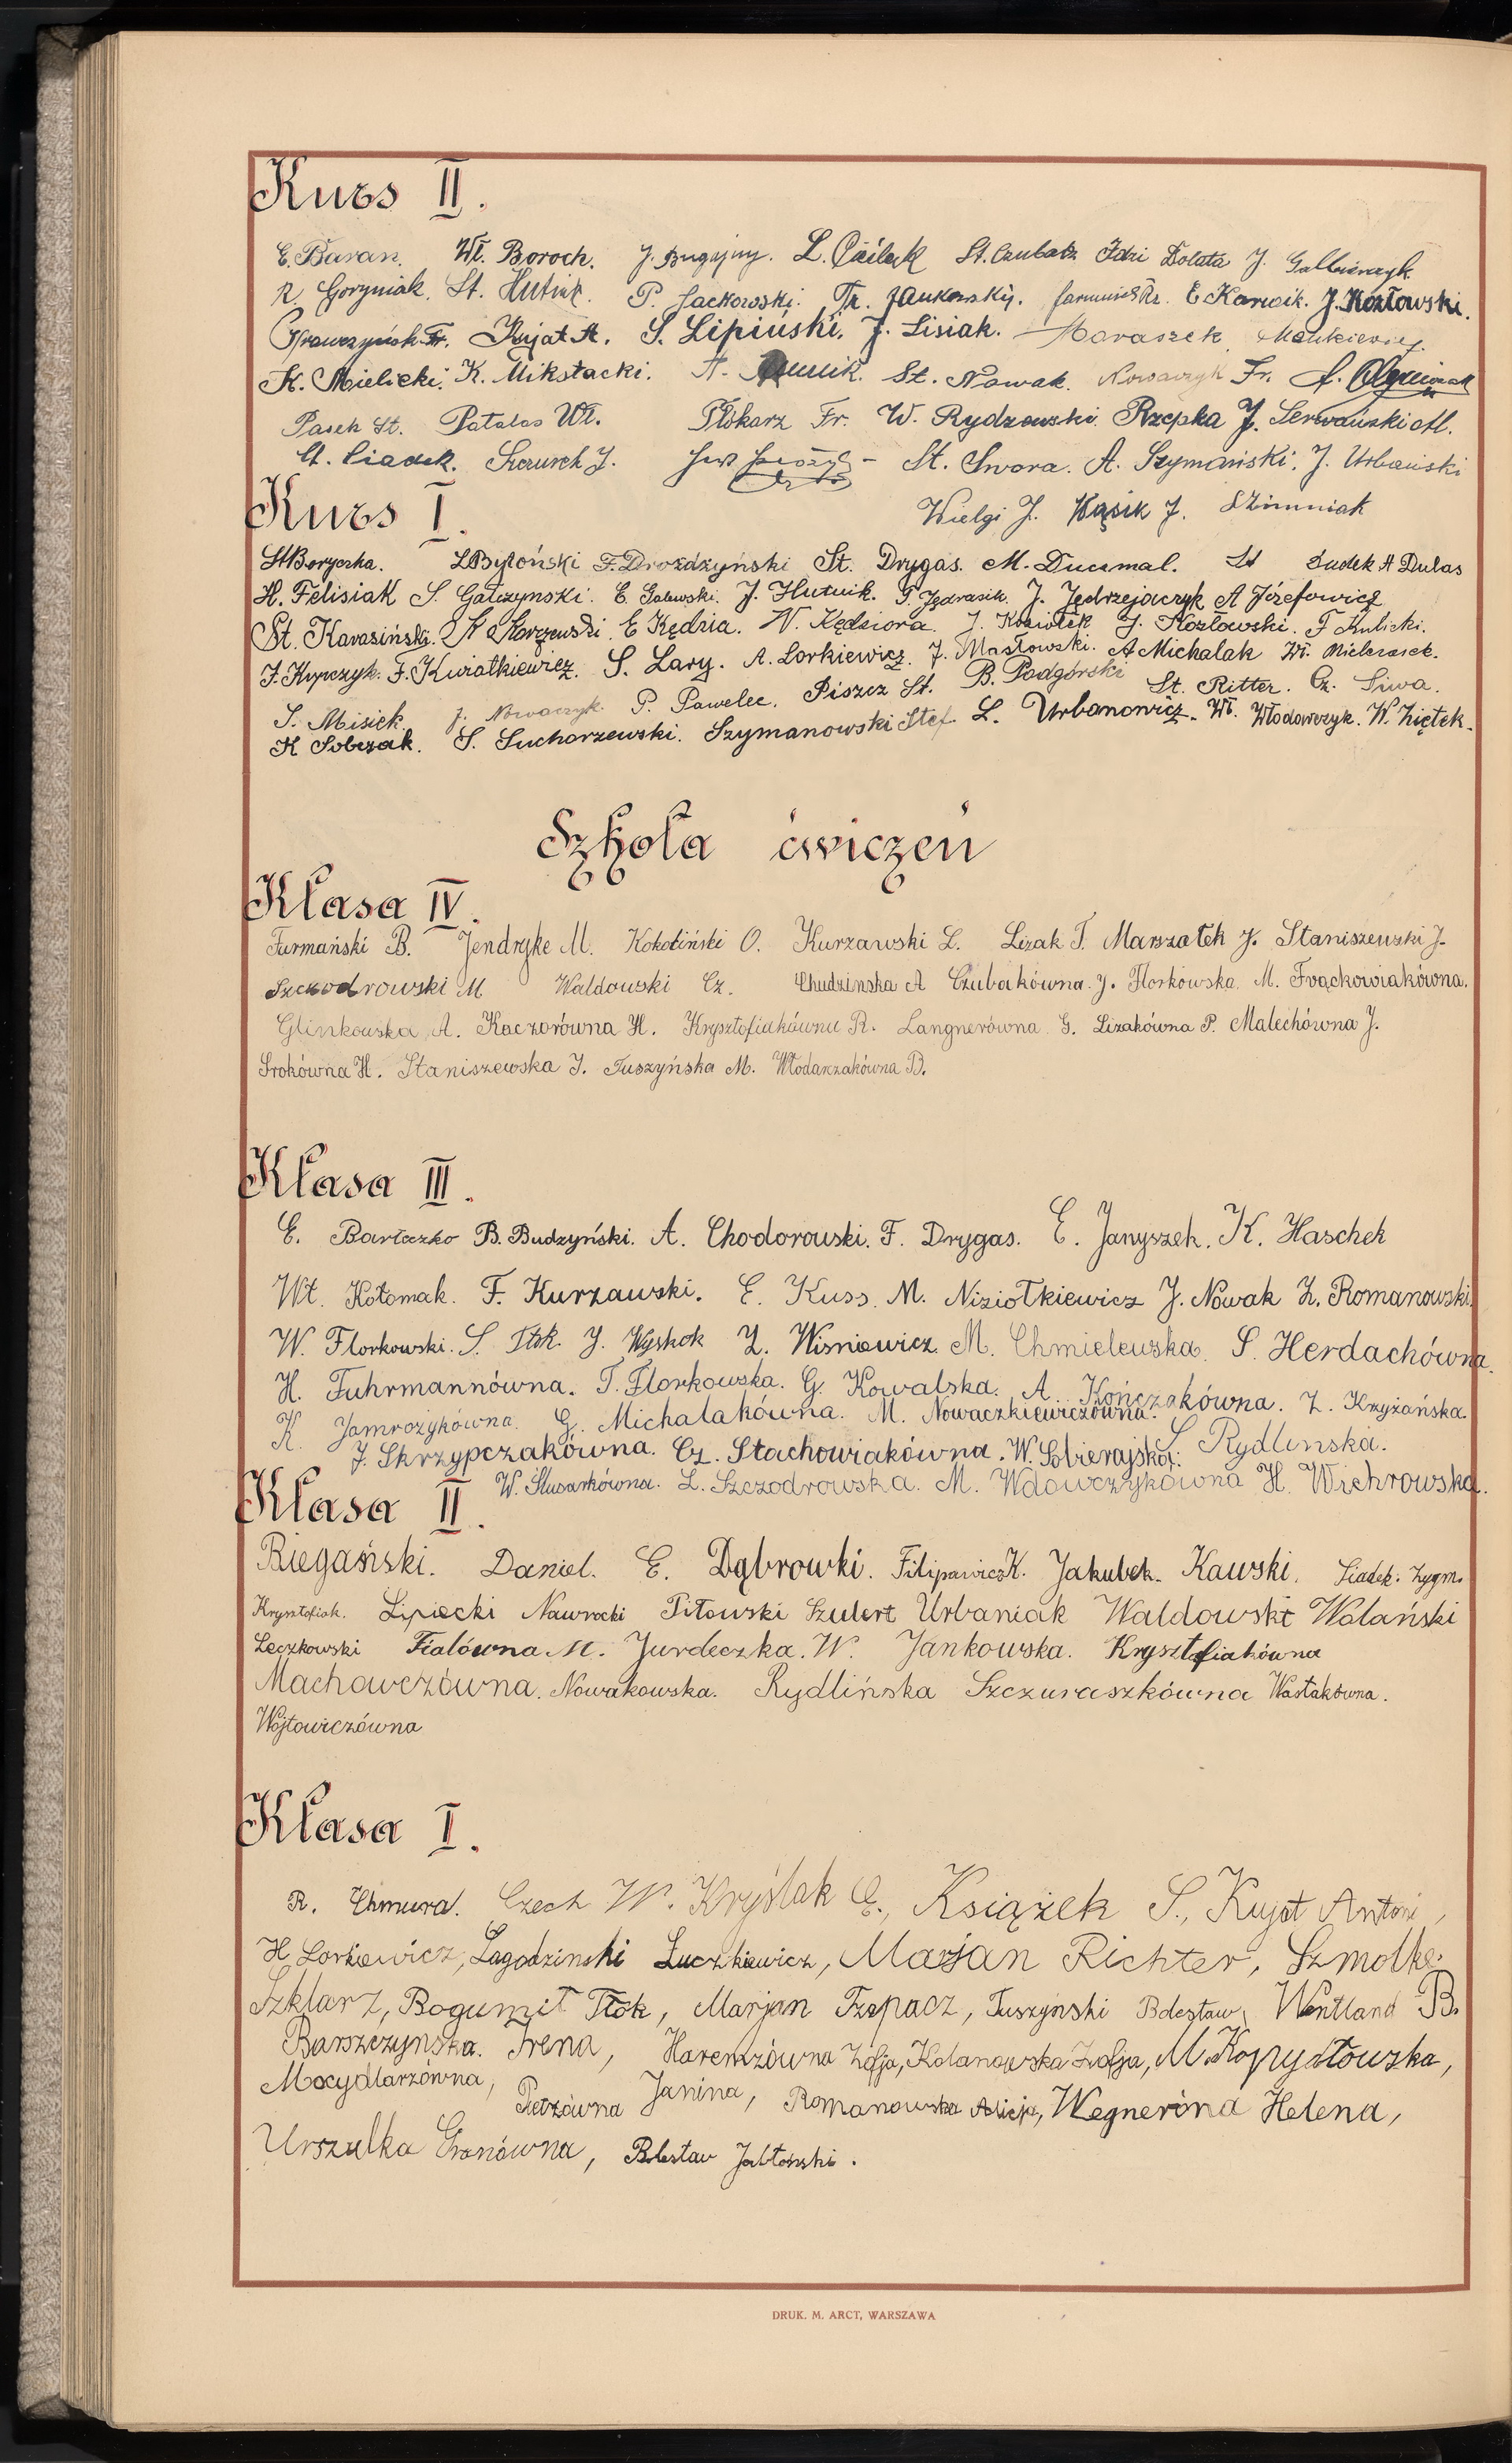 Kurs II.
E. Baran. Wł. Boroch. J. Bugajny. L. Cieślak St. Czubak Idzi Dolata J. Galbierczyk
R. Goryniak. St. Hutnik. P. Jackowski. Fr. Jankowski. E. Karwik. J. Kozłowski.
Fr. Kujat A. S. Lipiński. J. Lisiak. Maraszek Matskiewicz.
K. Mielicki. K. Mikstacki. St. Nowak. Nowaczyk Fr.
Pasek St. Patalas Wł. Płókarz Fr. W. Rydzewski. Rzepka J. Serwański
Siadek. Szczurek J. St. Swora. A. Szymański. J. Urbański
Kurs I.
Wielgi J. Wąsik J. Zimniak
St Boryczka. L Bytoński F. Drożdżyński St. Drygas. M. Ducmal. St Dudek A Dulas
H. Felisiak S. Gałczynski. E. Galewski. J. Hutnik. P. Jędrasik. J. Jędrzejaczyk A Józefowicz
St. Karasiński. E Kędzia. W. Kędziora. J. Koziołek J. Kozłowski. F Kulicki.
J. Kupczyk. F. Kwiatkiewicz. S. Lary. A. Lorkiewicz. J. Masłowski. A Michalak Wł. Mielcarek.
S. Misiek. J. Nowaczyk. P. Pawelec. Piszcz St. B. Podgórski St. Ritter. Cz. Siwa.
K Sobczak. S. Sucharzewski. Szymanowski Stef. L. Urbanowicz. Wł. Włodarczyk. W. Ziętek.
Szkoła ćwiczeń
Klasa IV.
Furmański B. Jendryke M. Kokociński O. Kurzawski L. Lizak T. Marszałek J. Staniszewski J.
Szczodrowski M Waldowski Cz. Chudzinska A Czubakówna J. Florkowska. M. Frąckowiakówna.
Glinkowska A. Kaczorówna H. Krysztofiakówna R. Langnerówna G. Lizakówna P. Malechówna J.
Srokówna H. Staniszewska J. Tuszyńska M. Włodarczakówna B.
Klasa III.
E. Bartczko B. Budzyński. A. Chodorowski. F. Drygas. E. Janyszek. K. Haschek
Wł. Kołomak. F. Kurzawski. E. Kuss. M. Niziołkiewicz J. Nowak Z. Romanowski.
W. Florkowski. S. Tłok. J. Wyskok Z. Wisniewicz. M. Chmielewska. S. Herdachówna.
H. Fuhrmannówna. T. Florkowska. G. Kowalska. A. Kończakówna. Z. Krzyżańska.
K. Jamrozykówna. G. Michalakówna. M. Nowaczkiewiczówna.
J. Skrzypczakówna. Cz. Stachowiakówna. W. Sobierajska. S Rydlinska.
Klasa II.
W. Ślusarkówna. L. Szczodrowska. M. Wdowczykówna H. Wichrowska.
Biegański. Daniel. E. Dąbrowki. Filipowicz K. Jakubek. Kawski. Siadek. Zygm.
Krysztofiak. Lipiecki Nawrocki Pitowski Szulert Urbaniak Waldowski Wolański
Leczkowski Fialówna M. Jurdeczka. W. Jankowska. Krysztfiakówna
Machowczówna. Nowakowska. Rydlińska Szczuraszkówna Wastakówna.
Wójtowiczówna
Klasa I.
R. Chmura. Czech W. Kryślak E., Książek S., Kujat Antoni,
H Lorkiewicz, Łagodzinski Łuczkiewicz, Marjan Richter, Szmolke.
Szklarz, Bogumił Tłok, Marjan Trepacz, Tuszyński Bolesław, Wentland B.
Barszczynska. Irena, Haremzówna Zofja, Kolanowska Zofja, M. Kopystowska,
Mocydlarzówna, Petzówna Janina, Romanowska Alicja, Wegneróna Helena,
Urszulka Gronówna, Bolesław Jabłoński.
DRUK. M. ARCT, WARSZAWA